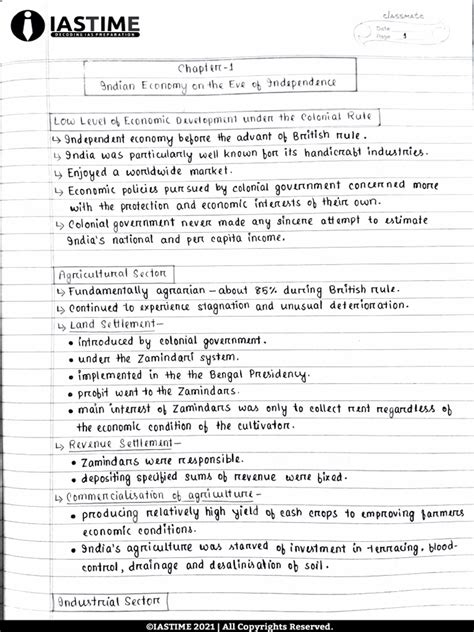 IASTIME
DECODING IAS PREPARATION
classmate
Date
Page 1
Chapter-1
Indian Economy on the Eve of Independence
Low Level of Economic Development under the Colonial Rule
↳ Independent economy before the advant of British rule.
↳ India was particularly well known for its handicraft industries.
↳ Enjoyed a worldwide market.
↳ Economic policies pursued by colonial government concerned more
with the protection and economic interests of their own.
↳ Colonial government never made any sincere attempt to estimate
India's national and per capita income.
Agricultural Sector
↳ Fundamentally agrarian – about 85% during British rule.
↳ Continued to experience stagnation and unusual deterioration.
↳ Land Settlement–
• introduced by colonial government.
• under the Zamindari system.
• implemented in the the Bengal Presidency.
• profit went to the Zamindars.
• main interest of Zamindars was only to collect rent regardless of
the economic condition of the cultivator.
↳ Revenue Settlement–
• Zamindars were responsible.
• depositing specified sums of revenue were fixed.
↳ Commercialisation of agriculture–
• producing relatively high yield of cash crops to improving farmers
economic conditions.
• India's agriculture was starved of investment in terracing, blood-
control, drainage and desalinisation of soil.
Industrial Sector
©IASTIME 2021 | All Copyrights Reserved.